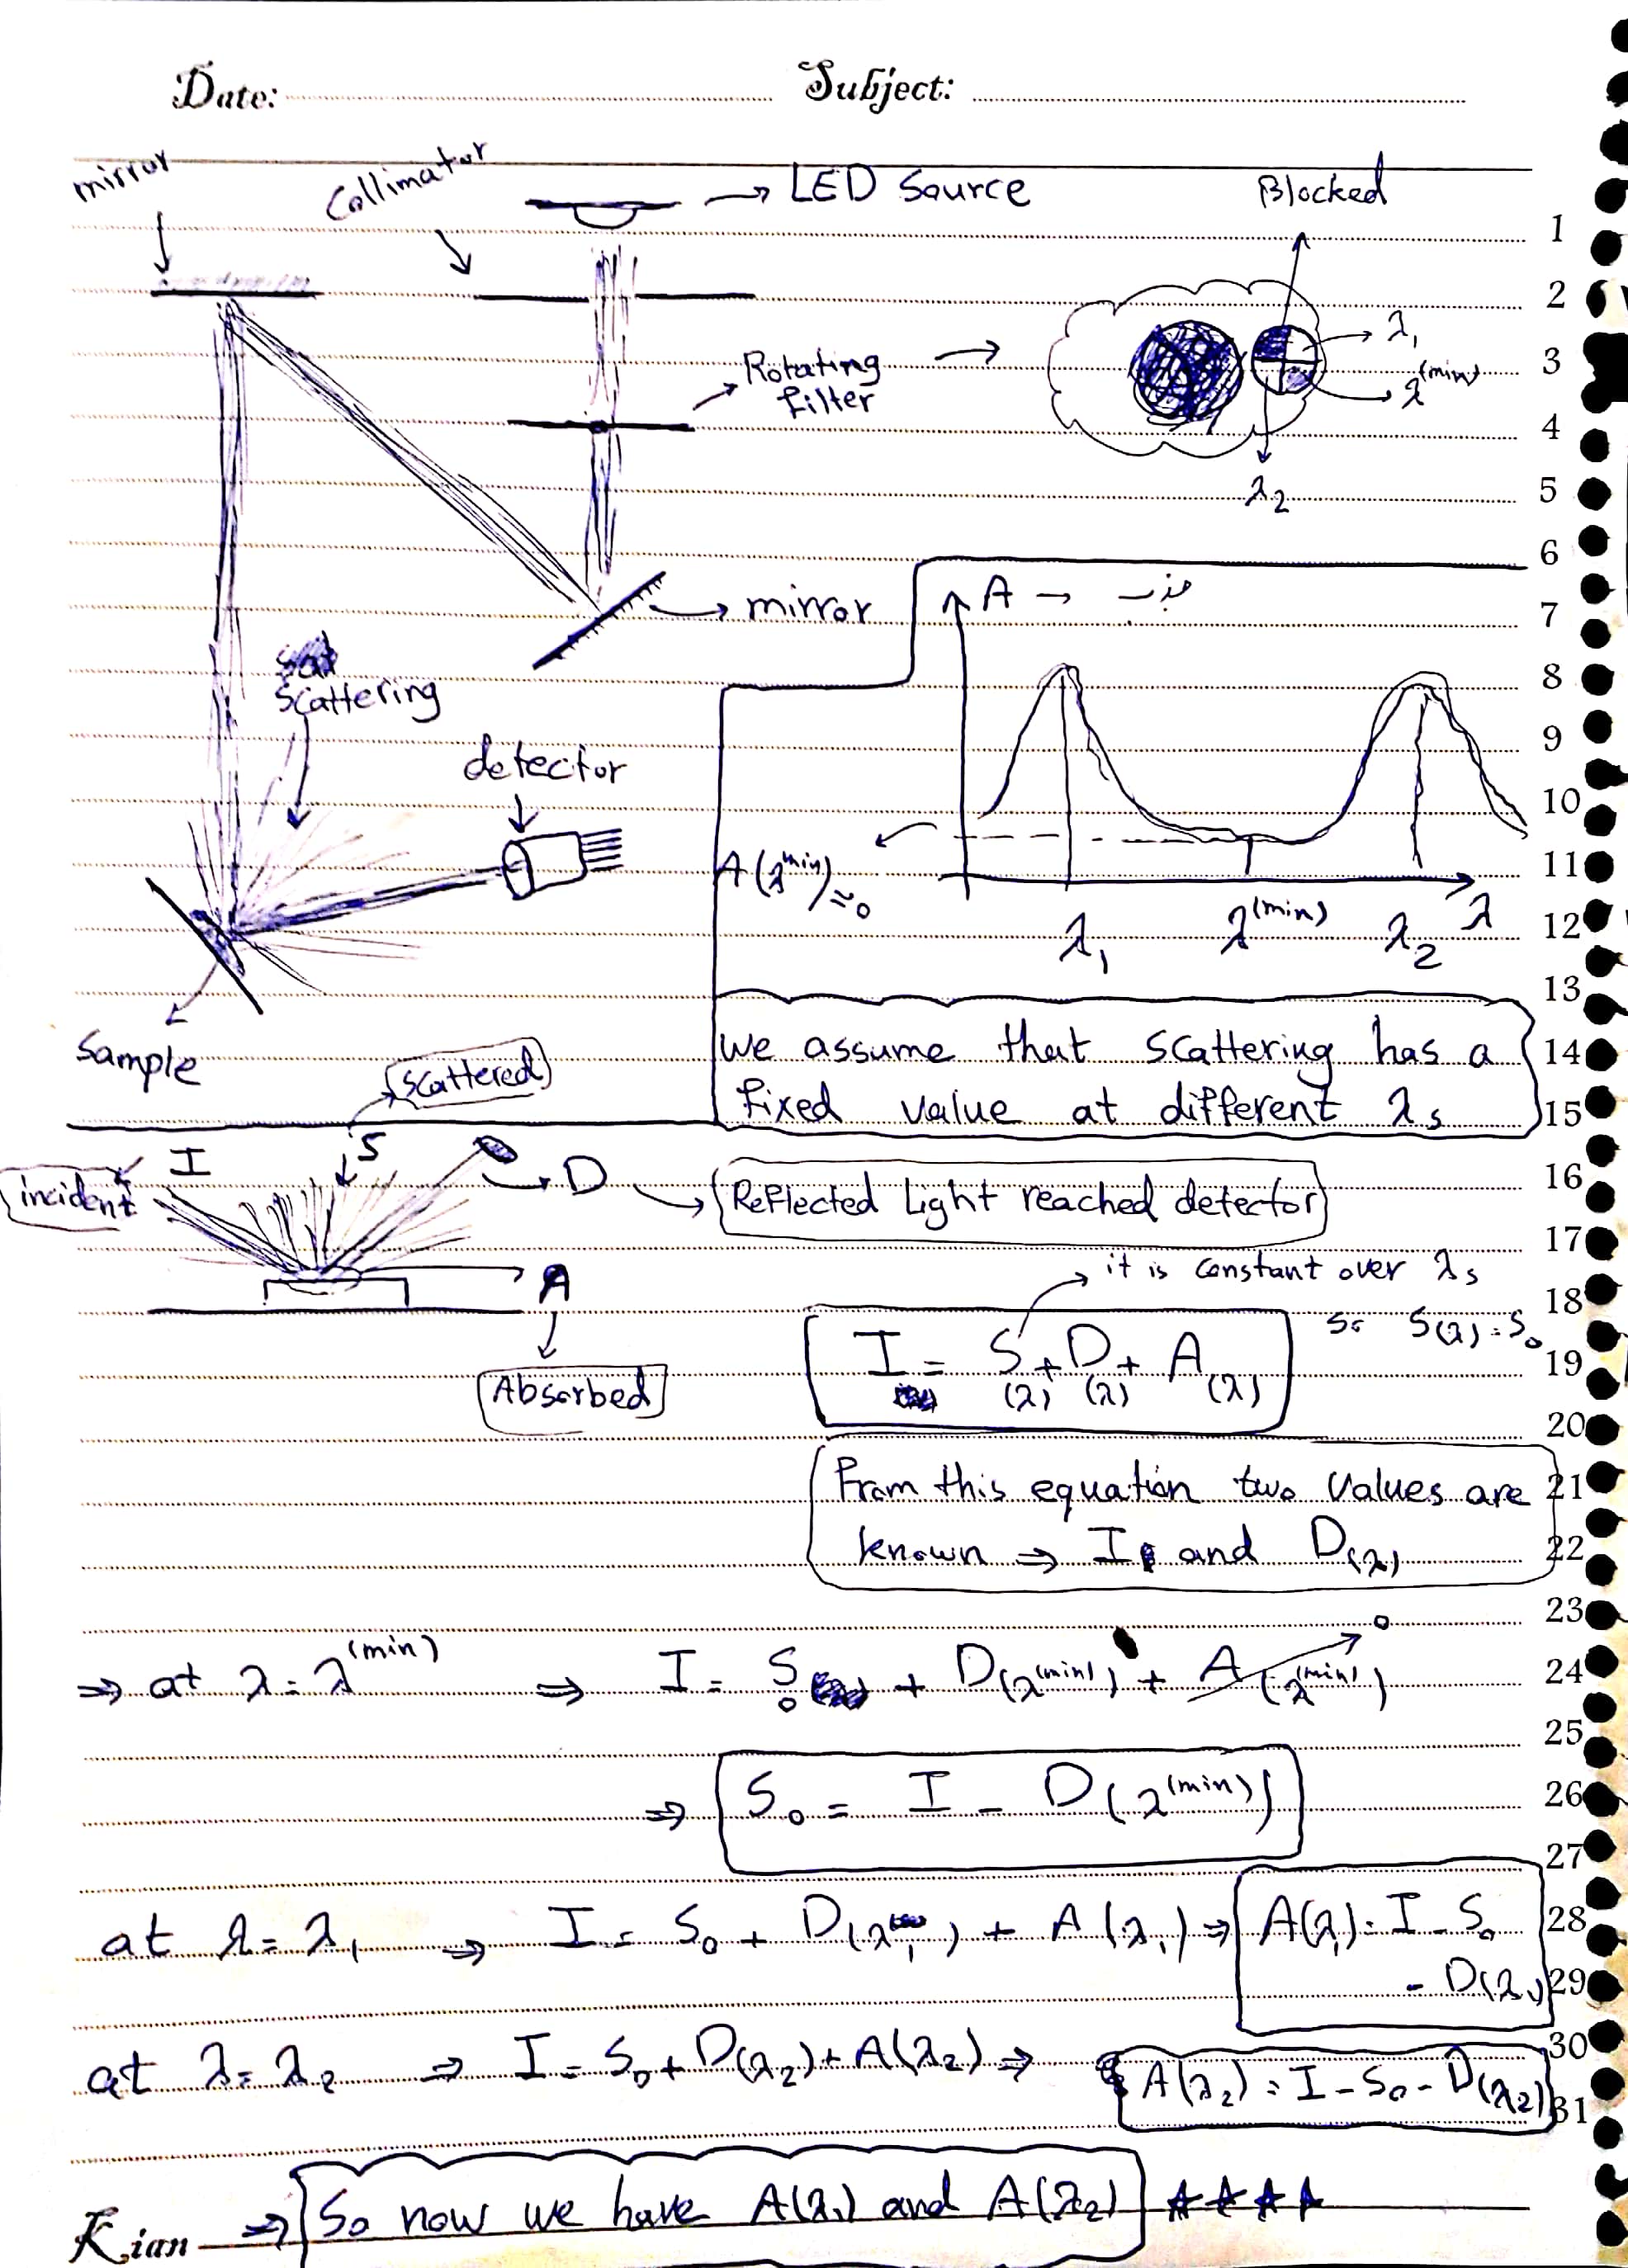 Date: Subject:
mirror
Collimator
LED Source
Blocked
λ₁
λ(min)
λ₂
Rotating
filter
mirror
Scattering
detector
Sample
A → جذب
A(λmin)≈0
λ₁ λ(min) λ₂ λ
we assume that scattering has a
fixed value at different λs
scattered
I S
incident
D → Reflected Light reached detector
A
Absorbed
it is constant over λs
so S(λ)=S₀
I = S(λ) + D(λ) + A(λ)
From this equation two values are
known ⇒ I and D(λ)
⇒ at λ=λ(min) ⇒ I = S₀ + D(λ(min)) + A(λ(min)) → 0
⇒ S₀ = I - D(λ(min))
at λ=λ₁ ⇒ I = S₀ + D(λ₁) + A(λ₁) ⇒ A(λ₁) = I - S₀
- D(λ₁)
at λ=λ₂ ⇒ I = S₀+D(λ₂)+A(λ₂) ⇒ A(λ₂) = I-S₀-D(λ₂)
⇒ So now we have A(λ₁) and A(λ₂)
Kian
1
2
3
4
5
6
7
8
9
10
11
12
13
14
15
16
17
18
19
20
21
22
23
24
25
26
27
28
29
30
31